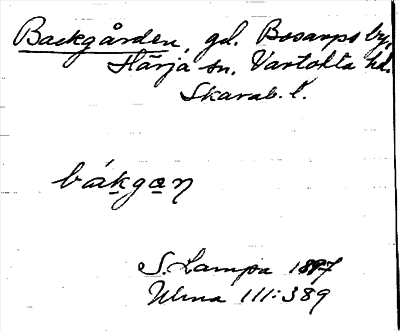 Backgården, gd. Bosarps by,
Härja sn. Vartofta hd.
Skarab. l.
bákgaṇ
S. Lampa 1897
Ulma 111:389